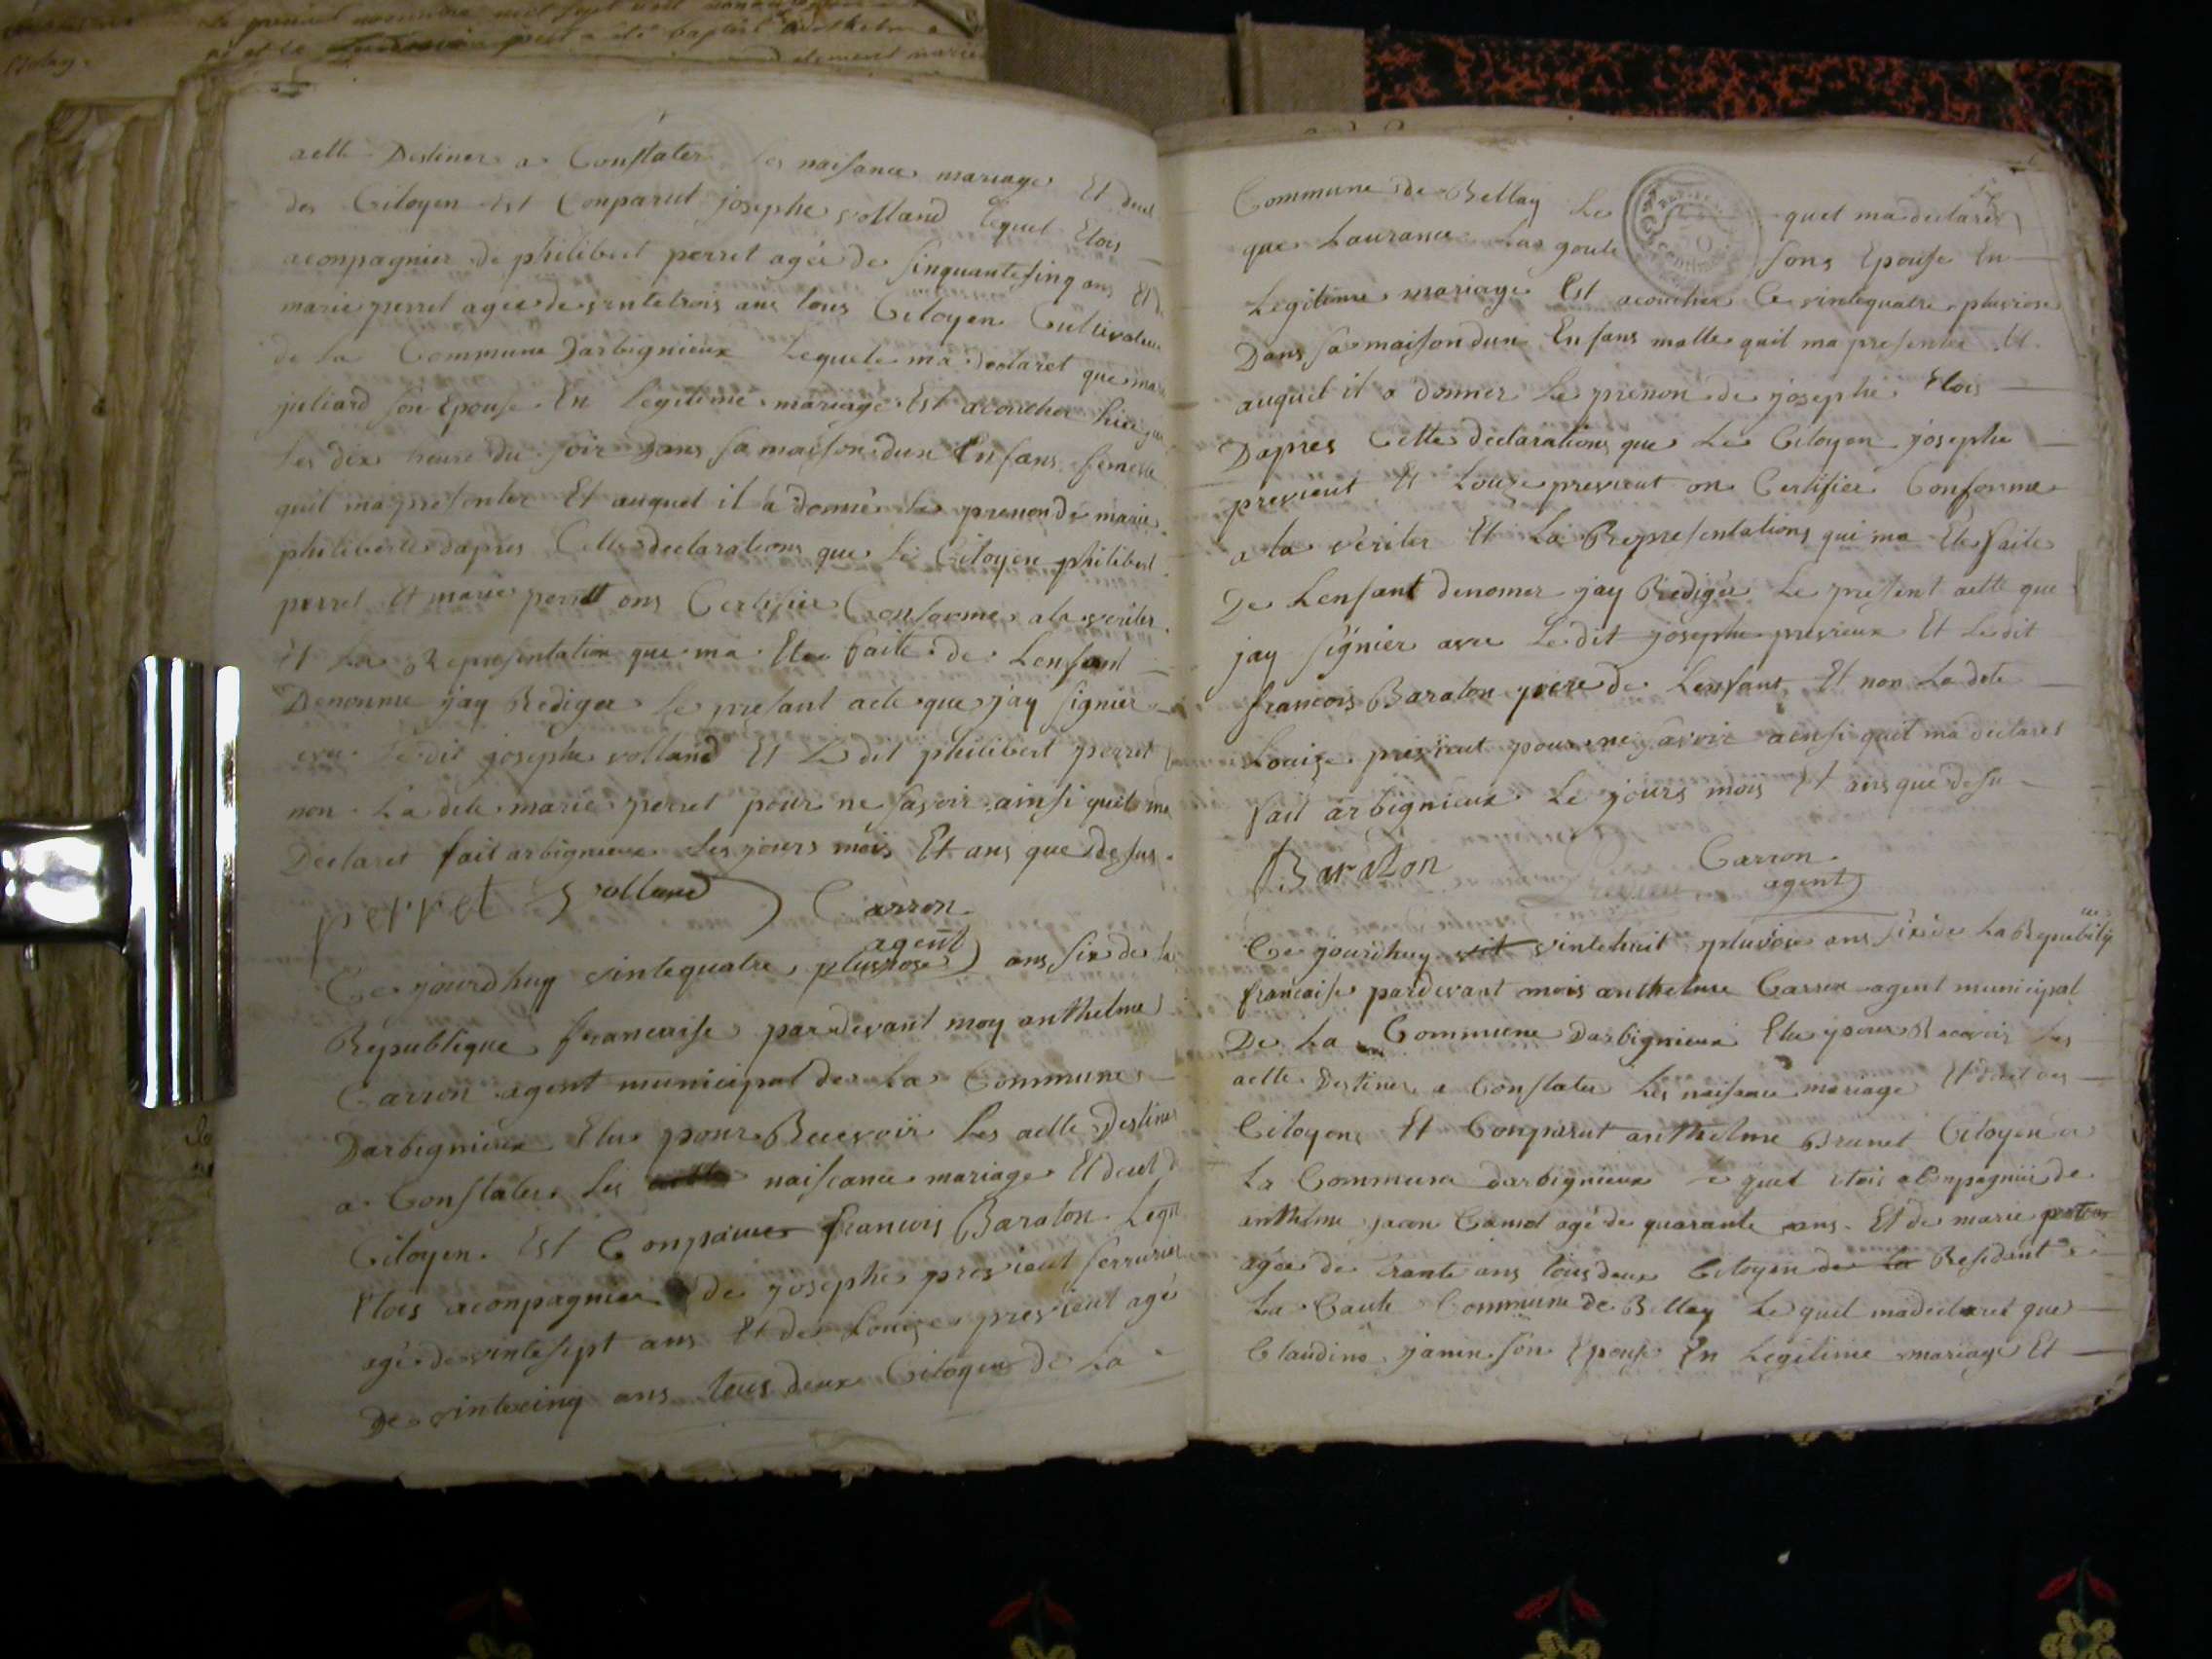 acttt Destiner a Constater les naisance mariage Et deut
des Citoyen est Conparut josephe volland lequel Etois
aconpagnier de philibert perret ageé de sinquantesinq ans Et de
marie perret ageé de vintetrois ans tous Citoyen Cultivateur
de la Commune Darbignieux Lequele ma declaret que marie
juliard son Epouse En legitime mariage Est acoucher hier
les dix heure du soir Dans sa maison dun Enfans femelle
quil ma presenter Et auquel il a donné le prenon de marie
philiberte dapres Cette declarations que le Citoyen philibert
perret Et marie perret ons Certifier Conforme a la veriter
Et La Representation que ma Etee faite de Lenfant
Denonme jay Rediger Le presant acte que jay signier
avu le dit josephe volland Et Le dit philibert perret
non La dite marie perret pour ne savoir ainsi quil ma
Declaret fait arbignieux les jours mois Et ans que desus
perret volland Carron
agent
Ce jourdhuy vintequatre pluviose ans six de la
Republique francaise pardevant moy anthelme
Carron agent municipal de La Commune
Darbignieux Elue pour Recevoir les actte Destiner
a Constater les naiscance mariage Et deut d
Citoyen Est Conparue francois Baraton Lequel
Etois aconpagnier de josephe previeut serrurier
agé de vintesept ans Et de Louise previeut agé
De vintecinq ans tous deux Citoyen de La
Commune de Bellay Le quel ma declarer
que Laurance Lagoute sons Epouse En
Legitime mariage Est acoucher Ce vintequatre pluviose
Dans sa maison dun Enfans malle quil ma presenter Et
auquel il a donner Le prenon de josephe Elois
Dapres Cette declarations que Le Citoyen josephe
previeut Et Louize previeut on Certifier Conforme
a la veriter Et La Representations qui ma Ete faite
De Lenfant denomer jay Rediger Le present actte que
jay signier avu Le dit josephe previeux Et Le dit
francois Baraton pere de Lenfant Et non La dite
Louise previeut pour ne savoir ainsi quil ma declaret
fait arbignieux Le jours mois Et ans que desu
Baraton Carron
agent
Ce jourdhuy vit vintehuit pluviose ans six de La Republiq
francaise pardevant mois anthelme Carron agent municipal
De La Commune Darbignieux Elu pour Recevoir Les
actte Destiner a Constater Les naisance mariage Et deut des
Citoyens Et Conparut anthelme Brunet Citoyen a
La Commune darbignieux Le quel etoit aconpagnier de
anthelme jacon Camet agé de quarante ans Et de marie
ageé de trante ans tous deux Citoyen de La Residant a
La Caute Commune de Bellay Le quel ma declaret que
Claudine janin son Epouse En Legitime mariage Et